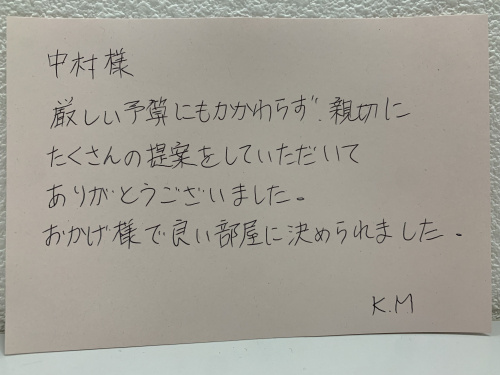 中村様
厳しい予算にもかかわらず、親切に
たくさんの提案をしていただいて
ありがとうございました。
おかげ様で良い部屋に決められました。
K.M